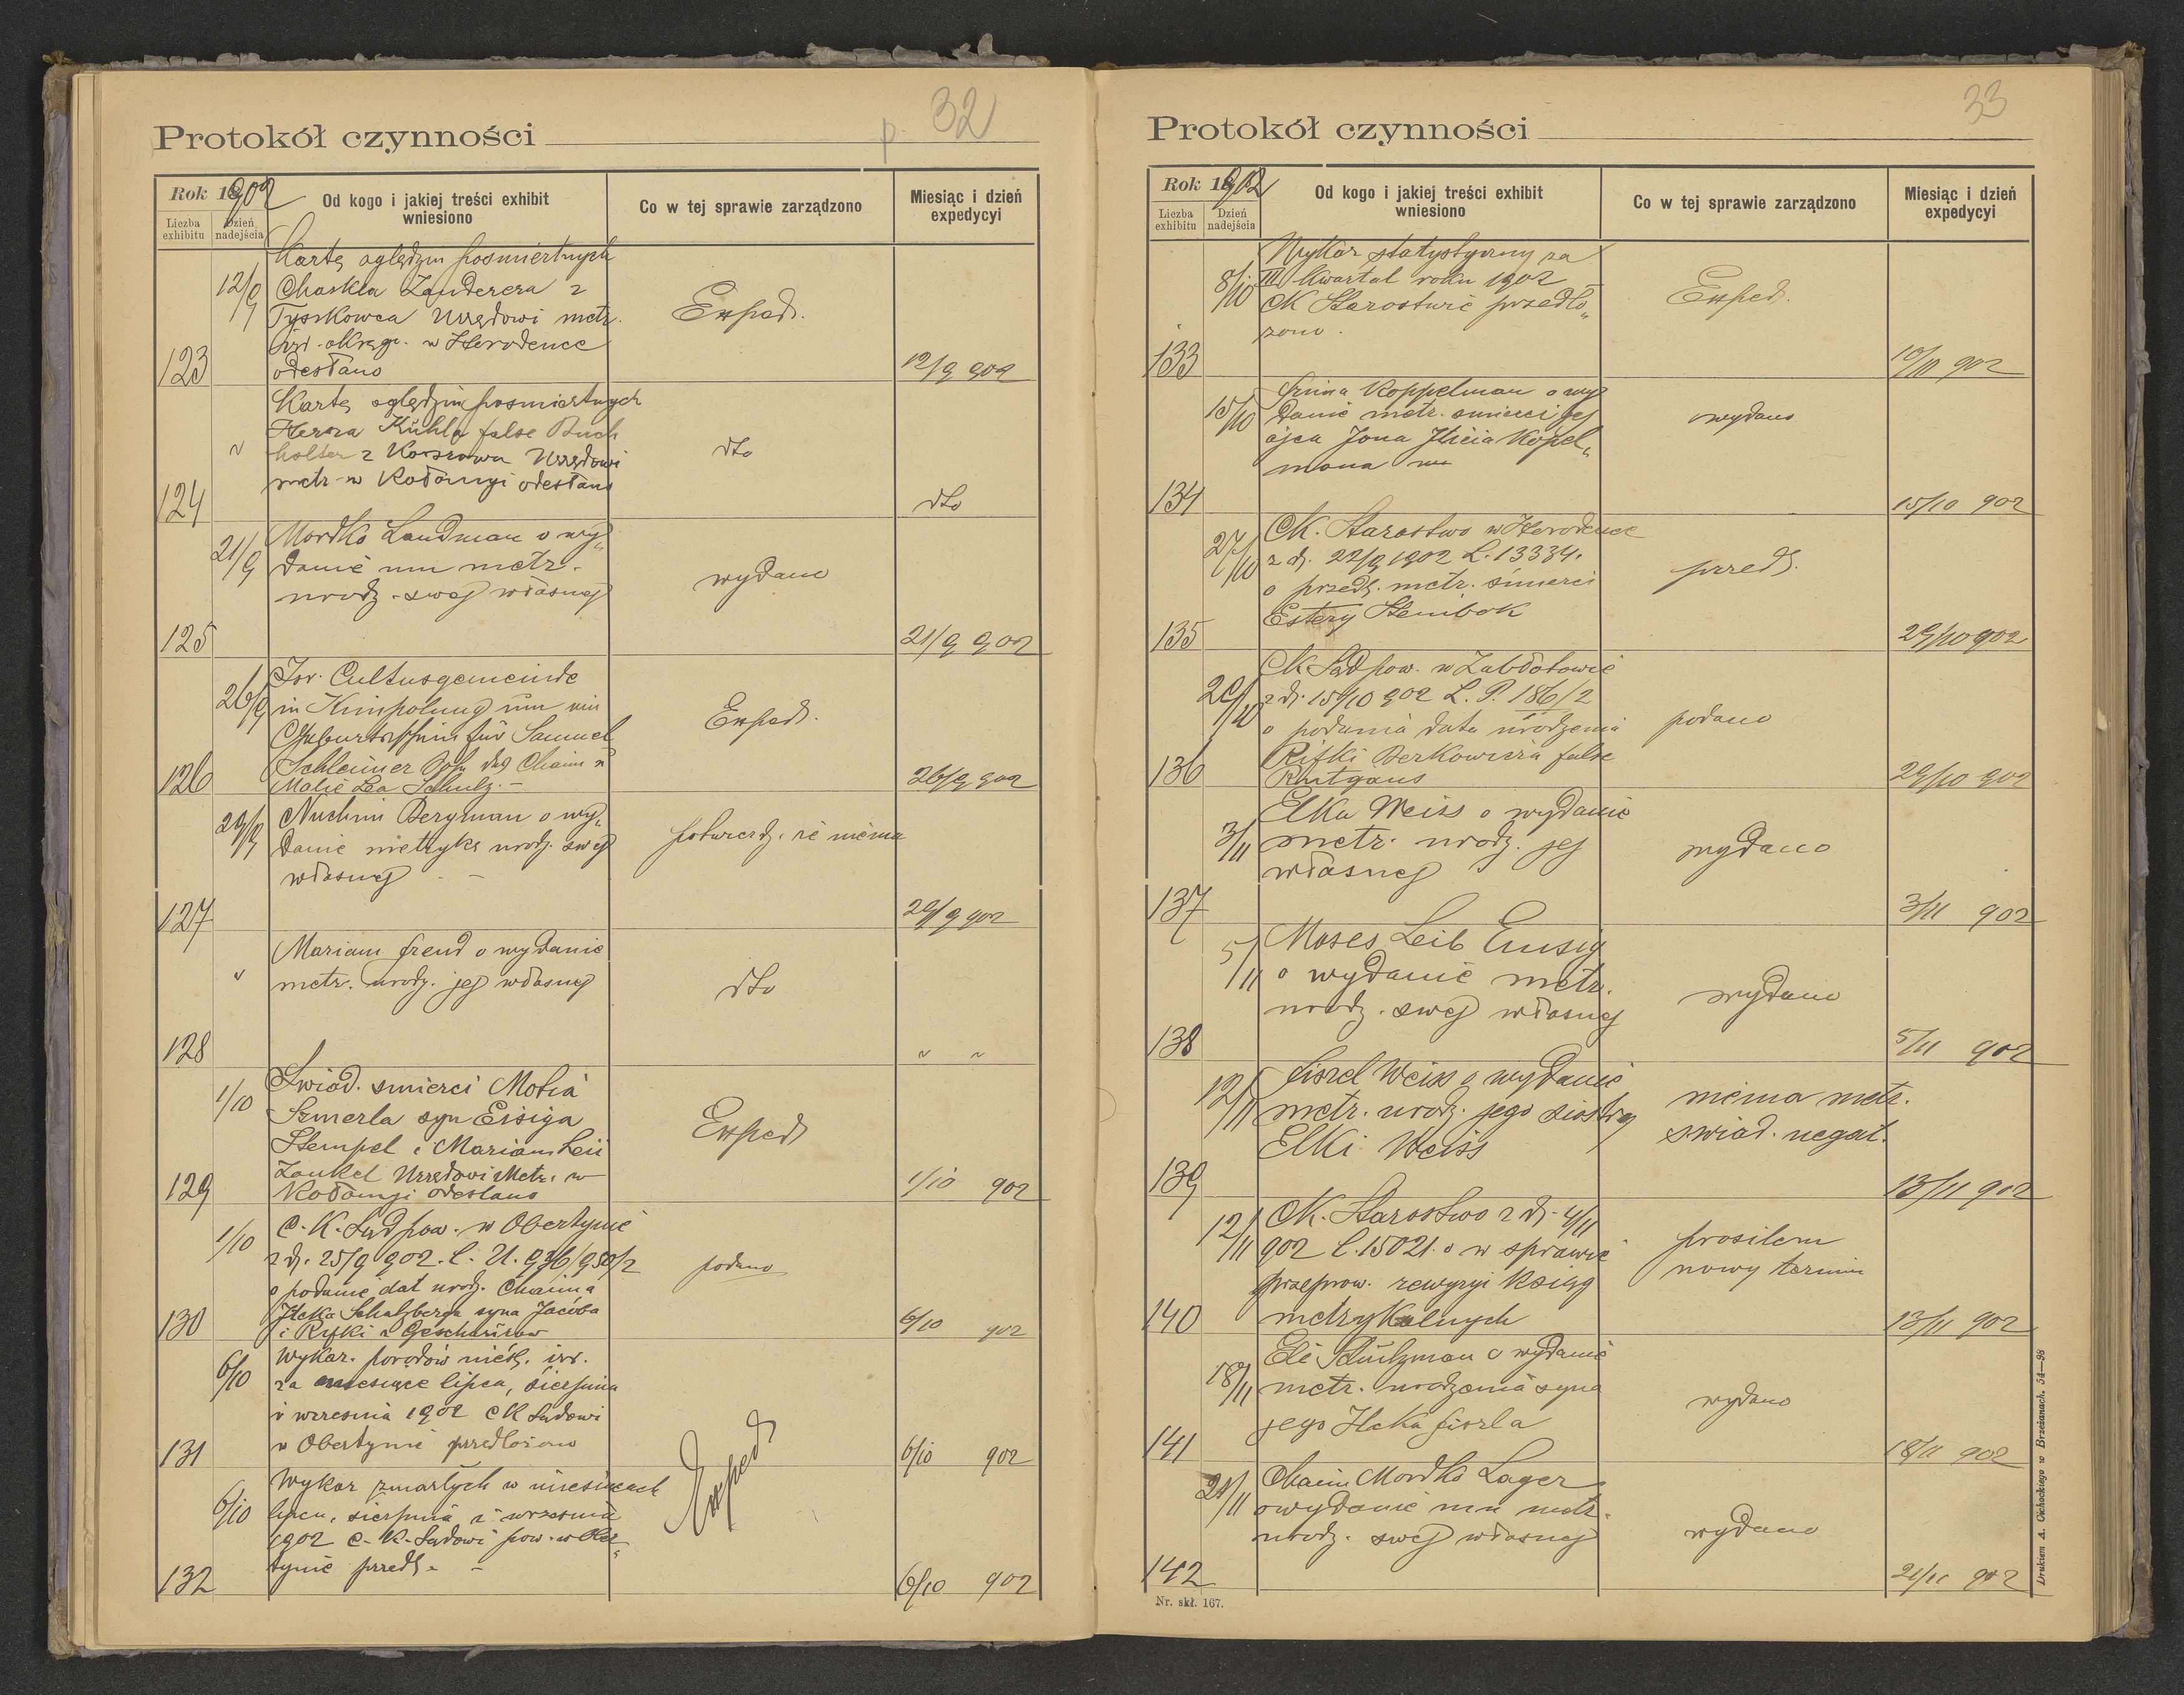 32
Protokół czynności
Rok 1902
Liczba exhibitu
Dzień nadejścia
Od kogo i jakiej treści exhibit wniesiono
Co w tej sprawie zarządzono
Miesiąc i dzień expedycyi
123
12/9
Kartę oględzin posmiertnych
Chaskla Zanderera z
Tyszkowca Urzędowi metr.
izr. okręg. w Horodence
odesłano
Exped.
12/9 902
124
"
Kartę oględzin posmiertnych
Herza Kühla false Buch
holter z Urzędowi
metr. w Kołomyi odesłano
dto
dto
125
21/9
Mordko Landman o wy„
danie mu metr.
urodz. swej własnej
wydano
21/9 902
126
26/9
Isr. Cultusgemeinde
in Kimpolung um ein
Geburtsschein für Samuel
Schleimer Sohn des Chaim u
Malie Lea Schulz. –
Exped.
26/9 902
127
29/9
Nuchim Bergman o wy„
danie metrykę urodz. swej
własnej –
potwierdz. że niema
29/9 902
128
"
Mariam freud o wydanie
metr. urodz. jej własnej
dto
" "
129
1/10
Swiad. smierci Motia
Szmerla syn Eisiga
Stempel i Mariam Leii
Zankel Urzędowi Metr. w
Kołomyi odesłano
Exped
1/10 902
130
1/10
C. K. Sąd pow. w Obertynie
z d. 25/9 902. L. U. 936/950/2
o podanie dat urodz. Chaima
Icka Schatzberga syna Jacoba
i Rifki
podano
6/10 902
131
6/10
Wykaz. porodów nieśl. izr.
za miesiące lipca, sierpnia
i wrzesnia 1902 CK Sądowi
w Obertynie przedłożono
Exped
6/10 902
132
6/10
Wykaz zmarłych w miesiącach
lipcu, sierpniu i wrzesniu
1902 C. K. Sądowi pow. w Ober„
tynie przedł. –
6/10 902
33
Protokół czynności
Rok 1902
Liczba exhibitu
Dzień nadejścia
Od kogo i jakiej treści exhibit wniesiono
Co w tej sprawie zarządzono
Miesiąc i dzień expedycyi
133
8/10
Wykaz statystyczny za
III kwartal roku 1902
CK Starostwie przedło„
zono.
Exped.
10/10 902
134
15/10
Koppelman o wy
danie metr. smierci jej
ojca Jona Kopel„
mana
wydano
15/10 902
135
27/10
CK. Starostwo w Horodence
z d. 22/9 1902 L. 13334.
o przedł. metr. śmierci
Estery Steinbok
przedł.
29/10 902
136
29/10
CK Sąd pow. w Zabłotowie
z d. 15/10 902 L. P. 186/2
o podania data urodzenia
Rifki Berkowicza false
podano
29/10 902
137
3/11
Elka Weiss o wydanie
metr. urodz. jej
własnej
wydano
3/11 902
138
5/11
Moses Leib Emsig
o wydanie metr.
urodz. swej własnej
wydano
5/11 902
139
12/11
fiszel Weiss o wydanie
metr. urodz. jego siostry
Elki Weiss
niema metr.
swiad. negat.
13/11 902
140
12/11
CK. Starostwo z d. 4/11
902 l. 15021. o w sprawie
przeprow. rewyzyi Ksiąg
metrykalnych
prosilem
nowy termin
13/11 902
141
18/11
Eli o wydanie
metr. urodzenia syna
jego Icka fiszla
wydano
18/11 902
142
21/11
Chaim Mordko Lager
o wydanie mu metr.
urodz. swej własnej
wydano
21/11 902
Nr. skł. 167.
Drukiem A. Cichockiego w Brzeżanach. 54—98